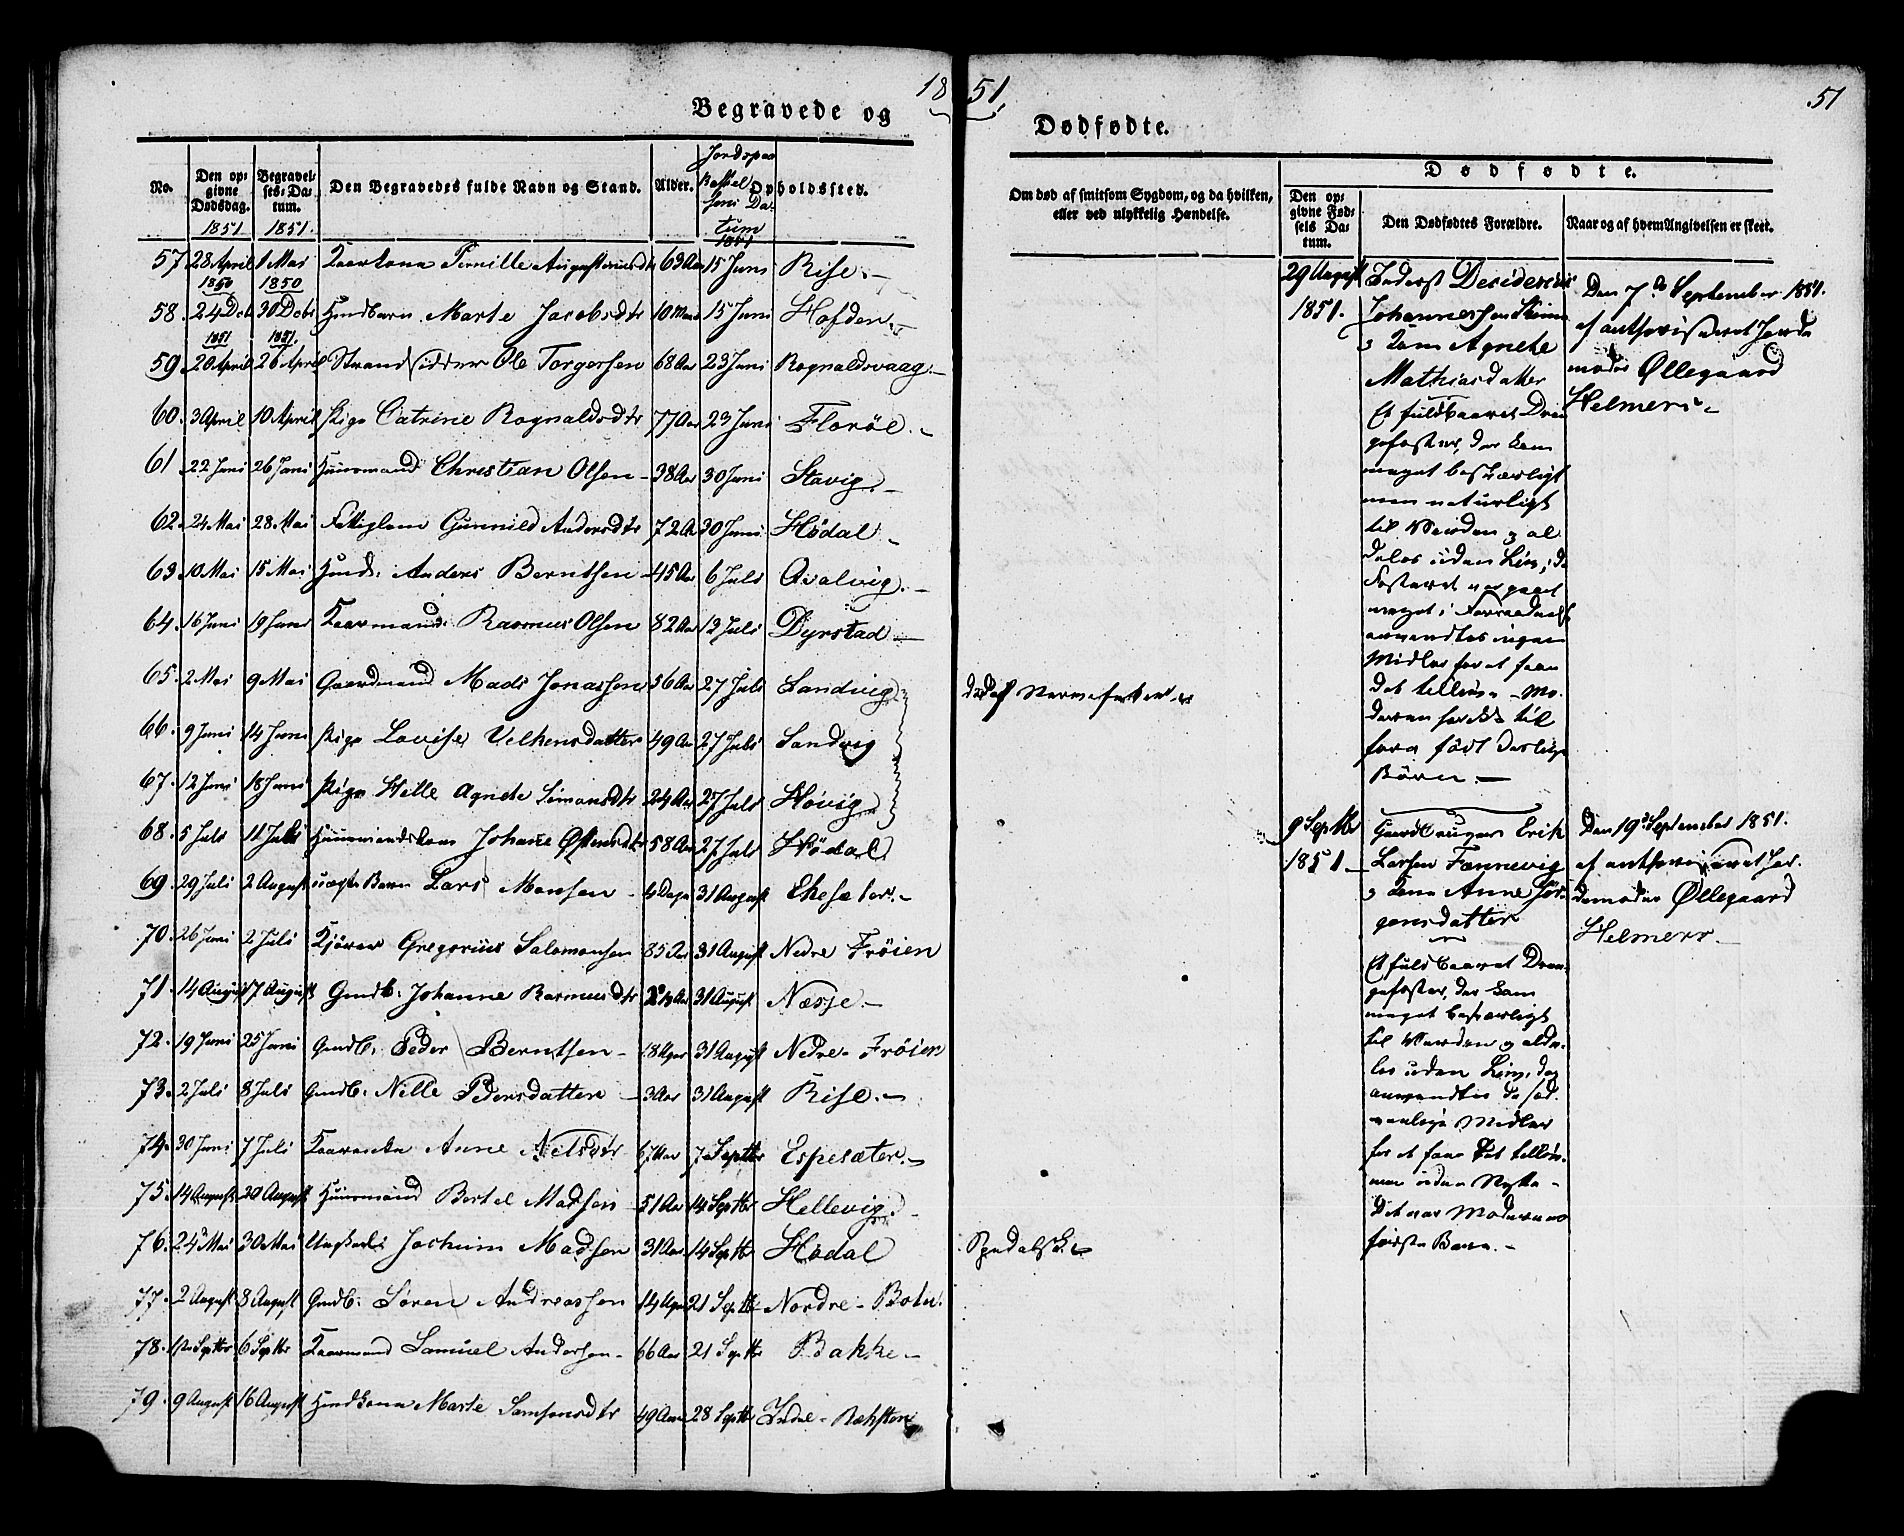 18 51. 51
Begravede og Dødfødte.
No. Den opgivne Dødsdag. 1851 Begravelses-Datum. 1851. Den Begravedes fulde Navn og Stand. Alder. Jordspaa Datum 1851 Opholdssted.
57. 28 April 1 Mai Kaarkona Pernille 63 Aar 15 Juni Rise.-
1850 1850
58. 24 Dcb 30 Dcbr Marte Jacobsdtr 10 15 Juni Hofden.-
1851 1851.
59. 20 April 26 April Strandsidder Ole Torgersen 68 Aar 23 Juni Rognaldsvaag.-
60. 3 April 10 April Pige Catrine Rognaldsdtr 77 Aar 23 Juni Florøe.-
61. 22 Juni 26 Juni Huusmand Christian Olsen 38 Aar 30 Juni Stavig.-
62. 24 Mai 28 Mai Gunnild Andersdtr 72 A 30 Juni Hødal.-
63. 10 Mai 15 Mai Anders Berntsen 45 Aar 6 Juli Qvalvig.-
64. 16 Juni 19 Juni Kaarmand Rasmus Olsen 82 Aar 12 Juli Dyrstad
65. 2 Mai 9 Mai Gaardmand Mads Jonassen 56 Aar 27 Juli Sandvig
66. 9 Juni 14 Juni Pige Lovise Vilhensdatter 49 Aar 27 Juli Sandvig
67. 12 Juni 18 Juni Pige Hille Agnete Simonsdtr 24 Aar 27 Juli Høvig
68. 5 Juli 11 Juli Huusmandskone Johane 58 Aar 27 Juli Hødal
69. 29 Juli 2 August uægte Barn Lars Monsen 4 Dage 31 August
70. 26 Juni 2 Juli Gregorius Salomonsen 85 Aar 31 August Nedre Frøien
71. 14 August 17 August Gmdb: Johanne Rasmusdtr 31 August Næsje-
72. 19 Juni 25 Juni Gmdb: Peder Berntsen 31 August Nedre-Frøien
73. 2 Juli 8 Juli Gmdb: Nille Pedersdatter 3 Aar 31 August Rise.-
74. 30 Juni 7 Juli Anne Nilsdtr 67 Aar 7 Septbr Espesæter.-
75. 14 August 20 August Huusmand Bertel Madsen 51 Aar 14 Septbr Hellevig.
76. 24 Mai 30 Mai Ungkarl Jochum Madsen 31 Aar 14 Septbr Hødal
77. 2 August 8 August Gmdb: Søren Andreassen 14 21 Septb Nordre-Botn.
78. 1 Septbr 6 Septbr Kaarmand Samuel Andersen 66 Aar 21 Septbr Bakke-
79. 9 August 16 August Marte Samsonsdtr 49 Aar 28 Septbr Indre-
Om død af smitsom Sygdom, og da hvilken, eller ved ulykkelig Hændelse.
død af Nervefeber
Spedalsk
Dødfødte.
Den opgivne Fødsels Datum. Den Dødfødtes Forældre. Naar og af hvem Angivelsen er skeet.
29 August 1851.
Inderst Desiderius
Johannessen
& Kone Agnete
Mathiasdatter
Et fuldbaaret Dren
gefoster, der kom
meget besværligt
men naturligt
til Verden & al
deles uden Liv; da
Fosteret var gaaet
meget i Forraadnelse
anvendtes ingen
Midler for at faae
det tillive - Mo
deren har
før født
Børn.-
Den 7de September 1851.
af authoriseret Jorde
moder Øllegaard
Helmers.-
9 Septbr 1851.
Gaardbruger Erik
Larsen Fannevig
& Kone Anne Jør
gensdatter
Et fuldbaaret Dren
gefoster, der kom
meget besværligt
til Verden & alde
les uden Liv, dog
anvendtes de sæd
vanlige Midler
for at faae det tilli
ve uden Nytte -
Det var Moderens
første Barn.-
Den 19de September 1851.
af authoriseret Jor
demoder Øllegaard
Helmers.-